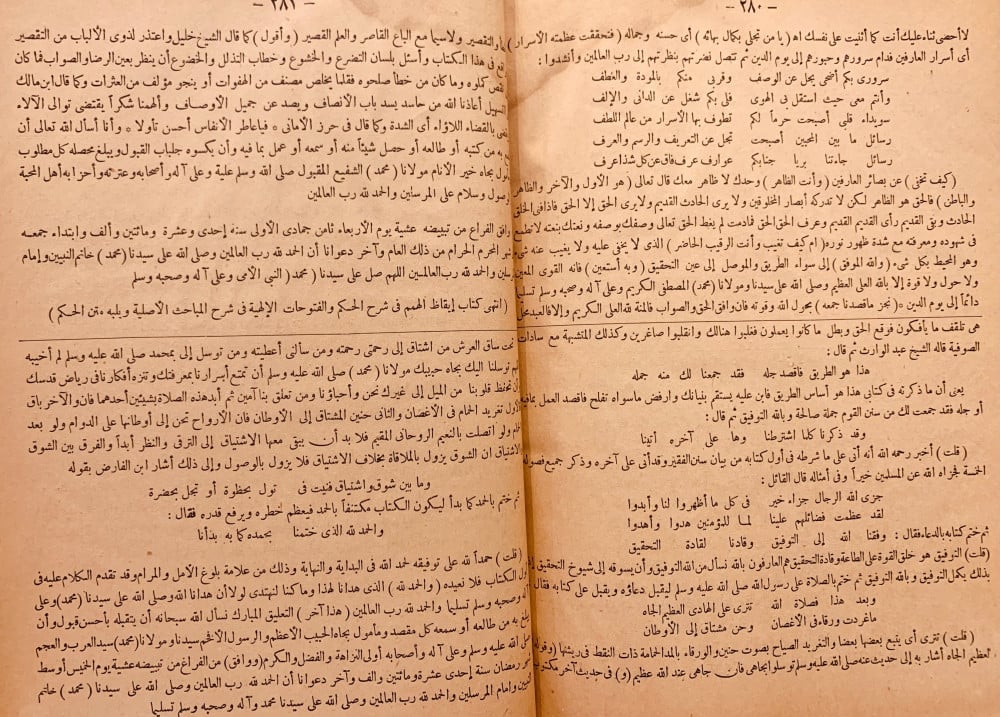 — ٢٨٠ —
لا أحصى ثناء عليك أنت كما أثنيت على نفسك اه (يا من تجلى بكمال بهائه) أى حسنه وجماله (فتحققت عظمته الأسرار)
أى أسرار العارفين فدام سرورهم وحبورهم إلى يوم الدين ثم تصل نضرتهم بنظرتهم إلى رب العالمين وأنشدوا :
سرورى بكم أضحى يجل عن الوصف وقربى منكم بالمودة والعطف
وأنتم معى حيث استقل بى الهوى فلى بكم شغل عن الدانى والإلف
سويداء قلبى أصبحت حرماً لكم تطوف بها الأسرار من عالم اللطف
رسائل ما بين المحبين أصبحت تجل عن التعريف والرسم والعرف
رسائل جاءتنا بريا جنابكم عوارف عرف فاق عن كل شذا عرف
(كيف تخفى) عن بصائر العارفين (وأنت الظاهر) وحدك لا ظاهر معك قال تعالى (هو الأول والآخر والظاهر
والباطن) فالحق هو الظاهر لكن لا تدركه أبصار المخلوقين ولا يرى الحادث القديم ولا يرى الحق إلا الحق فاذا فنى الخلق
الحادث وبقى القديم رأى القديم القديم وعرف الحق الحق فمادمت لم يغط الحق تعالى وصفك بوصفه ونعتك بنعته لا تطمع
فى شهوده ومعرفته مع شدة ظهور نوره (ام كيف تغيب وأنت الرقيب الحاضر) الذى لا يخفى عليه ولا يغيب عنه شىء
وهو المحيط بكل شىء (والله الموفق) إلى سواء الطريق والموصل إلى عين التحقيق (وبه أستعين) فانه القوى المعين
ولا حول ولا قوة إلا بالله العلى العظيم وصلى الله على سيدنا ومولانا (محمد) المصطفى الكريم وعلى آله وصحبه وسلم تسليما
دائماً إلى يوم الدين * (نجز ما قصدنا جمعه) بحول الله وقوته فان وافق الحق والصواب فالمنة لله العلى الكريم وإلا فالعبد محل
هى تلقف ما يأفكون فوقع الحق وبطل ما كانوا يعملون فغلبوا هنالك وانقلبوا صاغرين وكذلك المتشبهة مع سادات
الصوفية قاله الشيخ عبد الوارث ثم قال :
هذا هو الطريق فاقصد جله فقد جمعنا لك منه جمله
يعنى أن ما ذكرته فى كتابى هذا هو أساس الطريق فابن عليه يستقم بنيانك وارفض ماسواه تفلح فاقصد العمل بما فيه
أو جله فقد جمعت لك من سنن القوم جملة صالحة وبالله التوفيق ثم قال :
وقد ذكرنا كلما اشترطنا وها على آخره أتينا
(قلت) أخبر رحمه الله أنه أتى على ما شرطه فى أول كتابه من بيان سنن الفقير وقد أتى على آخره وذكر جميع فصوله
الخمسة فجزاه الله عن المسلمين خيراً وفى أمثاله قال القائل :
جزى الله الرجال جزاء خير فى كل ما أظهروا لنا وأبدوا
لقد عظمت فضائلهم علينا لما للمؤمنين هدوا وأهدوا
ثم ختم كتابه بالدعاء فقال : وفقنا الله إلى التوفيق وقادنا لقادة التحقيق
(قلت) التوفيق هو خلق القوة على الطاعة وقادة التحقيق هم العارفون بالله نسأل من الله التوفيق وأن يسوقه إلى شيوخ التحقيق إذ
بذلك يكمل التوفيق وبالله التوفيق ثم ختم بالصلاة على رسول الله صلى الله عليه وسلم ليقبل دعاؤه ويقبل على كتابه فقال
وبعد هذا فصلاة الله تترى على الهادى العظيم الجاه
ماغردت ورقاء فى الأغصان وحن مشتاق إلى الأوطان
(قلت) تترى أى يتبع بعضها بعضا والتغريد الصياح بصوت حنين والورقاء بالمد الحمامة ذات النقط فى ريشها (وقوله)
العظيم الجاه أشار به إلى حديث عنه صلى الله عليه وسلم توسلوا بجاهى فان جاهى عند الله عظيم (و) فى حديث آخر مكتوب
— ٢٨١ —
والتقصير ولاسيما مع الباع القاصر والعلم القصير (وأقول) كما قال الشيخ خليل واعتذر لذوى الألباب من التقصير
فى هذا الكتاب وأسئل بلسان التضرع والخشوع وخطاب التذلل والخضوع أن ينظر بعين الرضا والصواب فما كان
كملوه وما كان من خطأ صلحوه فقلما يخلص مصنف من الهفوات أو ينجو مؤلف من العثرات وكما قال ابن مالك
التسهيل أعاذنا الله من حاسد يسد باب الانصاف ويصد عن جميل الأوصاف وألهمنا شكراً يقتضى توالى الآلاء
بالقضاء اللاواء أى الشدة وكما قال فى حرز الأمانى * فياعاطر الأنفاس أحسن تأولا * وأنا أسأل الله تعالى أن
به من كتبه أو طالعه أو حصل شيئاً منه أو سمعه أو عمل بما فيه وأن يكسوه جلباب القبول ويبلغ محصله كل مطلوب
بجاه خير الأنام مولانا (محمد) الشفيع المقبول صلى الله عليه وسلم وعلى آله وأصحابه وعترته وأحزابه أهل المحبة
والوصول وسلام على المرسلين والحمد لله رب العالمين
وافق الفراغ من تبيضه عشية يوم الأربعاء ثامن جمادى الأولى سنة إحدى وعشرة ومائتين وألف وابتداء جمعه
المحرم الحرام من ذلك العام وآخر دعوانا أن الحمد لله رب العالمين وصلى الله على سيدنا (محمد) خاتم النبيين وإمام
والحمد لله رب العالمين اللهم صل على سيدنا (محمد) النبى الأمى وعلى آله وصحبه وسلم
(انتهى كتاب إيقاظ الهمم فى شرح الحكم والفتوحات الإلهية فى شرح المباحث الأصلية ويليه متن الحكم)
تحت ساق العرش من اشتاق إلى رحمتى رحمته ومن سألنى أعطيته ومن توسل إلى بمحمد صلى الله عليه وسلم لم أخيبه
توسلنا اليك بجاه حبيبك مولانا (محمد) صلى الله عليه وسلم أن تمتع أسرارنا بمعرفتك وتنزه أفكارنا فى رياض قدسك
تحفظ قلوبنا من الميل إلى غيرك نحن وأحباؤنا ومن تعلق بنا آمين ثم أبد هذه الصلاة بشيئين أحدهما فان والآخر باق
تغريد الحمام فى الأغصان والثانى حنين المشتاق إلى الأوطان فان الأرواح تحن إلى أوطانها على الدوام ولو بعد
ولو اتصلت بالنعيم الروحانى المقيم فلا بد أن يبقى معها الاشتياق إلى الترقى والنظر أبداً والفرق بين الشوق
والاشتياق ان الشوق يزول بالملاقاة بخلاف الاشتياق فلا يزول بالوصول وإلى ذلك أشار ابن الفارض بقوله
وما بين شوق واشتياق فنيت فى تول بحظوة أو تجل بحضرة
ثم ختم بالحمد كما بدأ ليكون الكتاب مكتنفاً بالحمد فيعظم خطره ويرفع قدره فقال :
والحمد لله الذى ختمنا بحمده كما به بدأنا
(قلت) حمداً لله على توفيقه لحمد الله فى البداية والنهاية وذلك من علامة بلوغ الأمل والمرام وقد تقدم الكلام عليه فى
الكتاب فلا نعيده (والحمد لله) الذى هدانا لهذا وما كنا لنهتدى لولا أن هدانا الله وصلى الله على سيدنا (محمد) وعلى
آله وصحبه وسلم تسليما والحمد لله رب العالمين (هذا آخر) التعليق المبارك نسأل الله سبحانه أن يتقبله بأحسن قبول وأن
به من طالعه أو سمعه كل مقصد ومأمول بجاه الحبيب الاعظم والرسول الأفخم سيدنا ومولانا (محمد) سيد العرب والعجم
صلى الله عليه وسلم وعلى آله وأصحابه أولى النزاهة والفضل والكرم (ووافق) من الفراغ من تبيضه عشية يوم الخميس أوسط
رمضان سنة إحدى عشرة ومائتين والف وآخر دعوانا أن الحمد لله رب العالمين وصلى الله على سيدنا (محمد) خاتم
النبيين وإمام المرسلين والحمد لله رب العالمين وصلى الله على سيدنا محمد وآله وصحبه وسلم تسليما